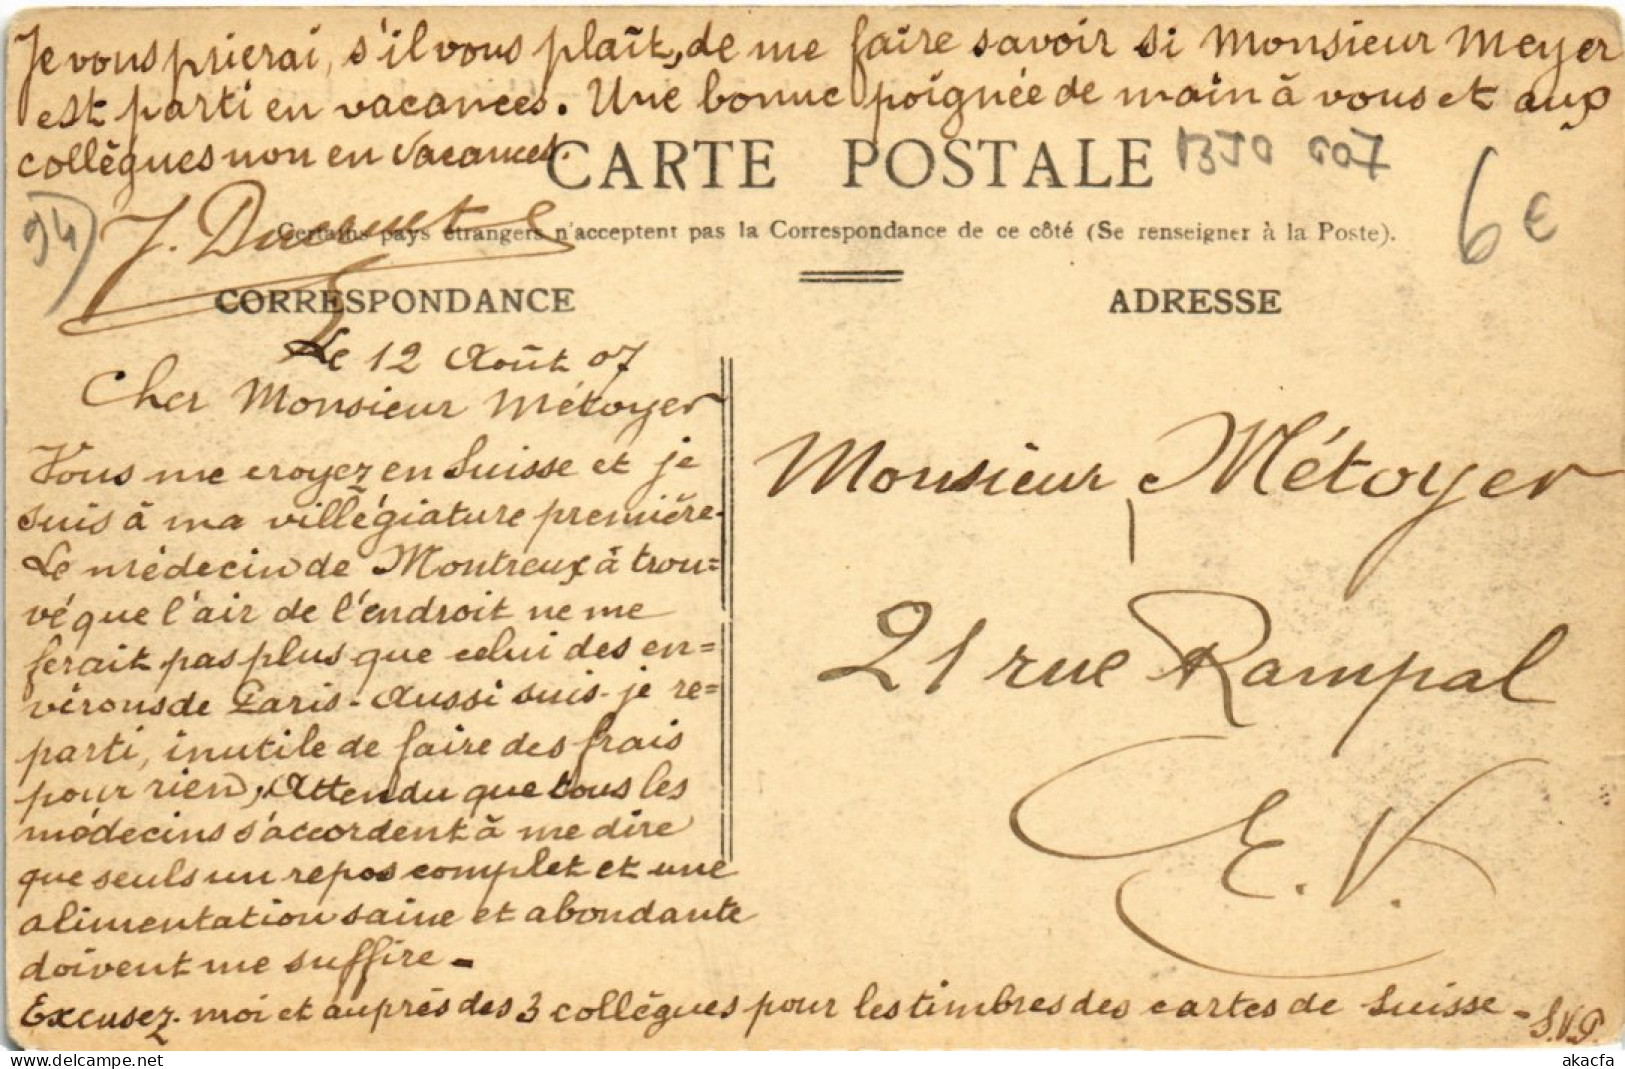 Je vous prierai, s'il vous plaît, de me faire savoir si Monsieur Meyer
est parti en vacances. Une bonne poignée de main à vous et aux
collègues non en vacances.
CARTE POSTALE
6 €
94)
Certains pays étrangers n'acceptent pas la Correspondance de ce côté (Se renseigner à la Poste).
CORRESPONDANCE
ADRESSE
Le 12 Août 07
Cher Monsieur Métoyer
Vous me croyez en Suisse et je
suis à ma villégiature première.
Le médecin de Montreux à trou=
vé que l'air de l'endroit ne me
ferait pas plus que celui des en=
virons de Paris. Aussi suis-je re=
parti, inutile de faire des frais
pour rien, Attendu que tous les
médecins s'accordent à me dire
que seuls un repos complet et une
alimentation saine et abondante
doivent me suffire -
Excusez-moi et auprès des 3 collègues pour les timbres des cartes de Suisse - S.V.P.
Monsieur Métoyer
21 rue Rampal
E. V.
akacfa